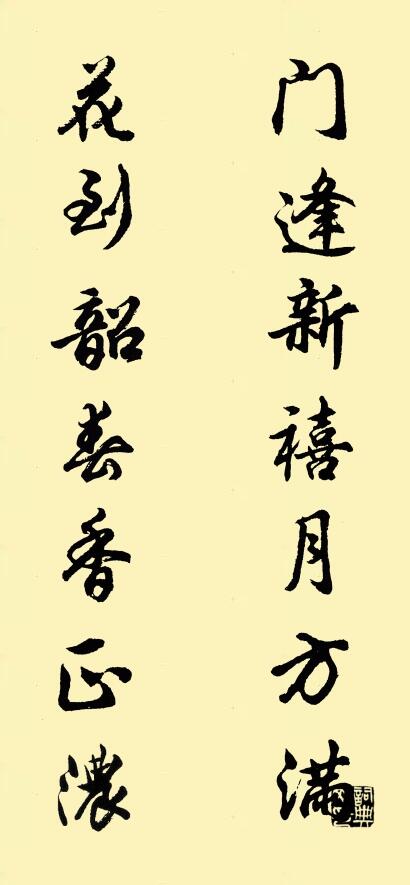 门逢新禧月方满
花到韶春香正浓